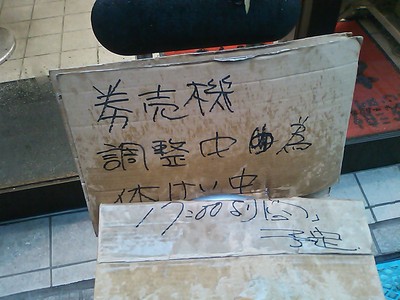 券売機
調整中の為
休けい中
17:00より
予定